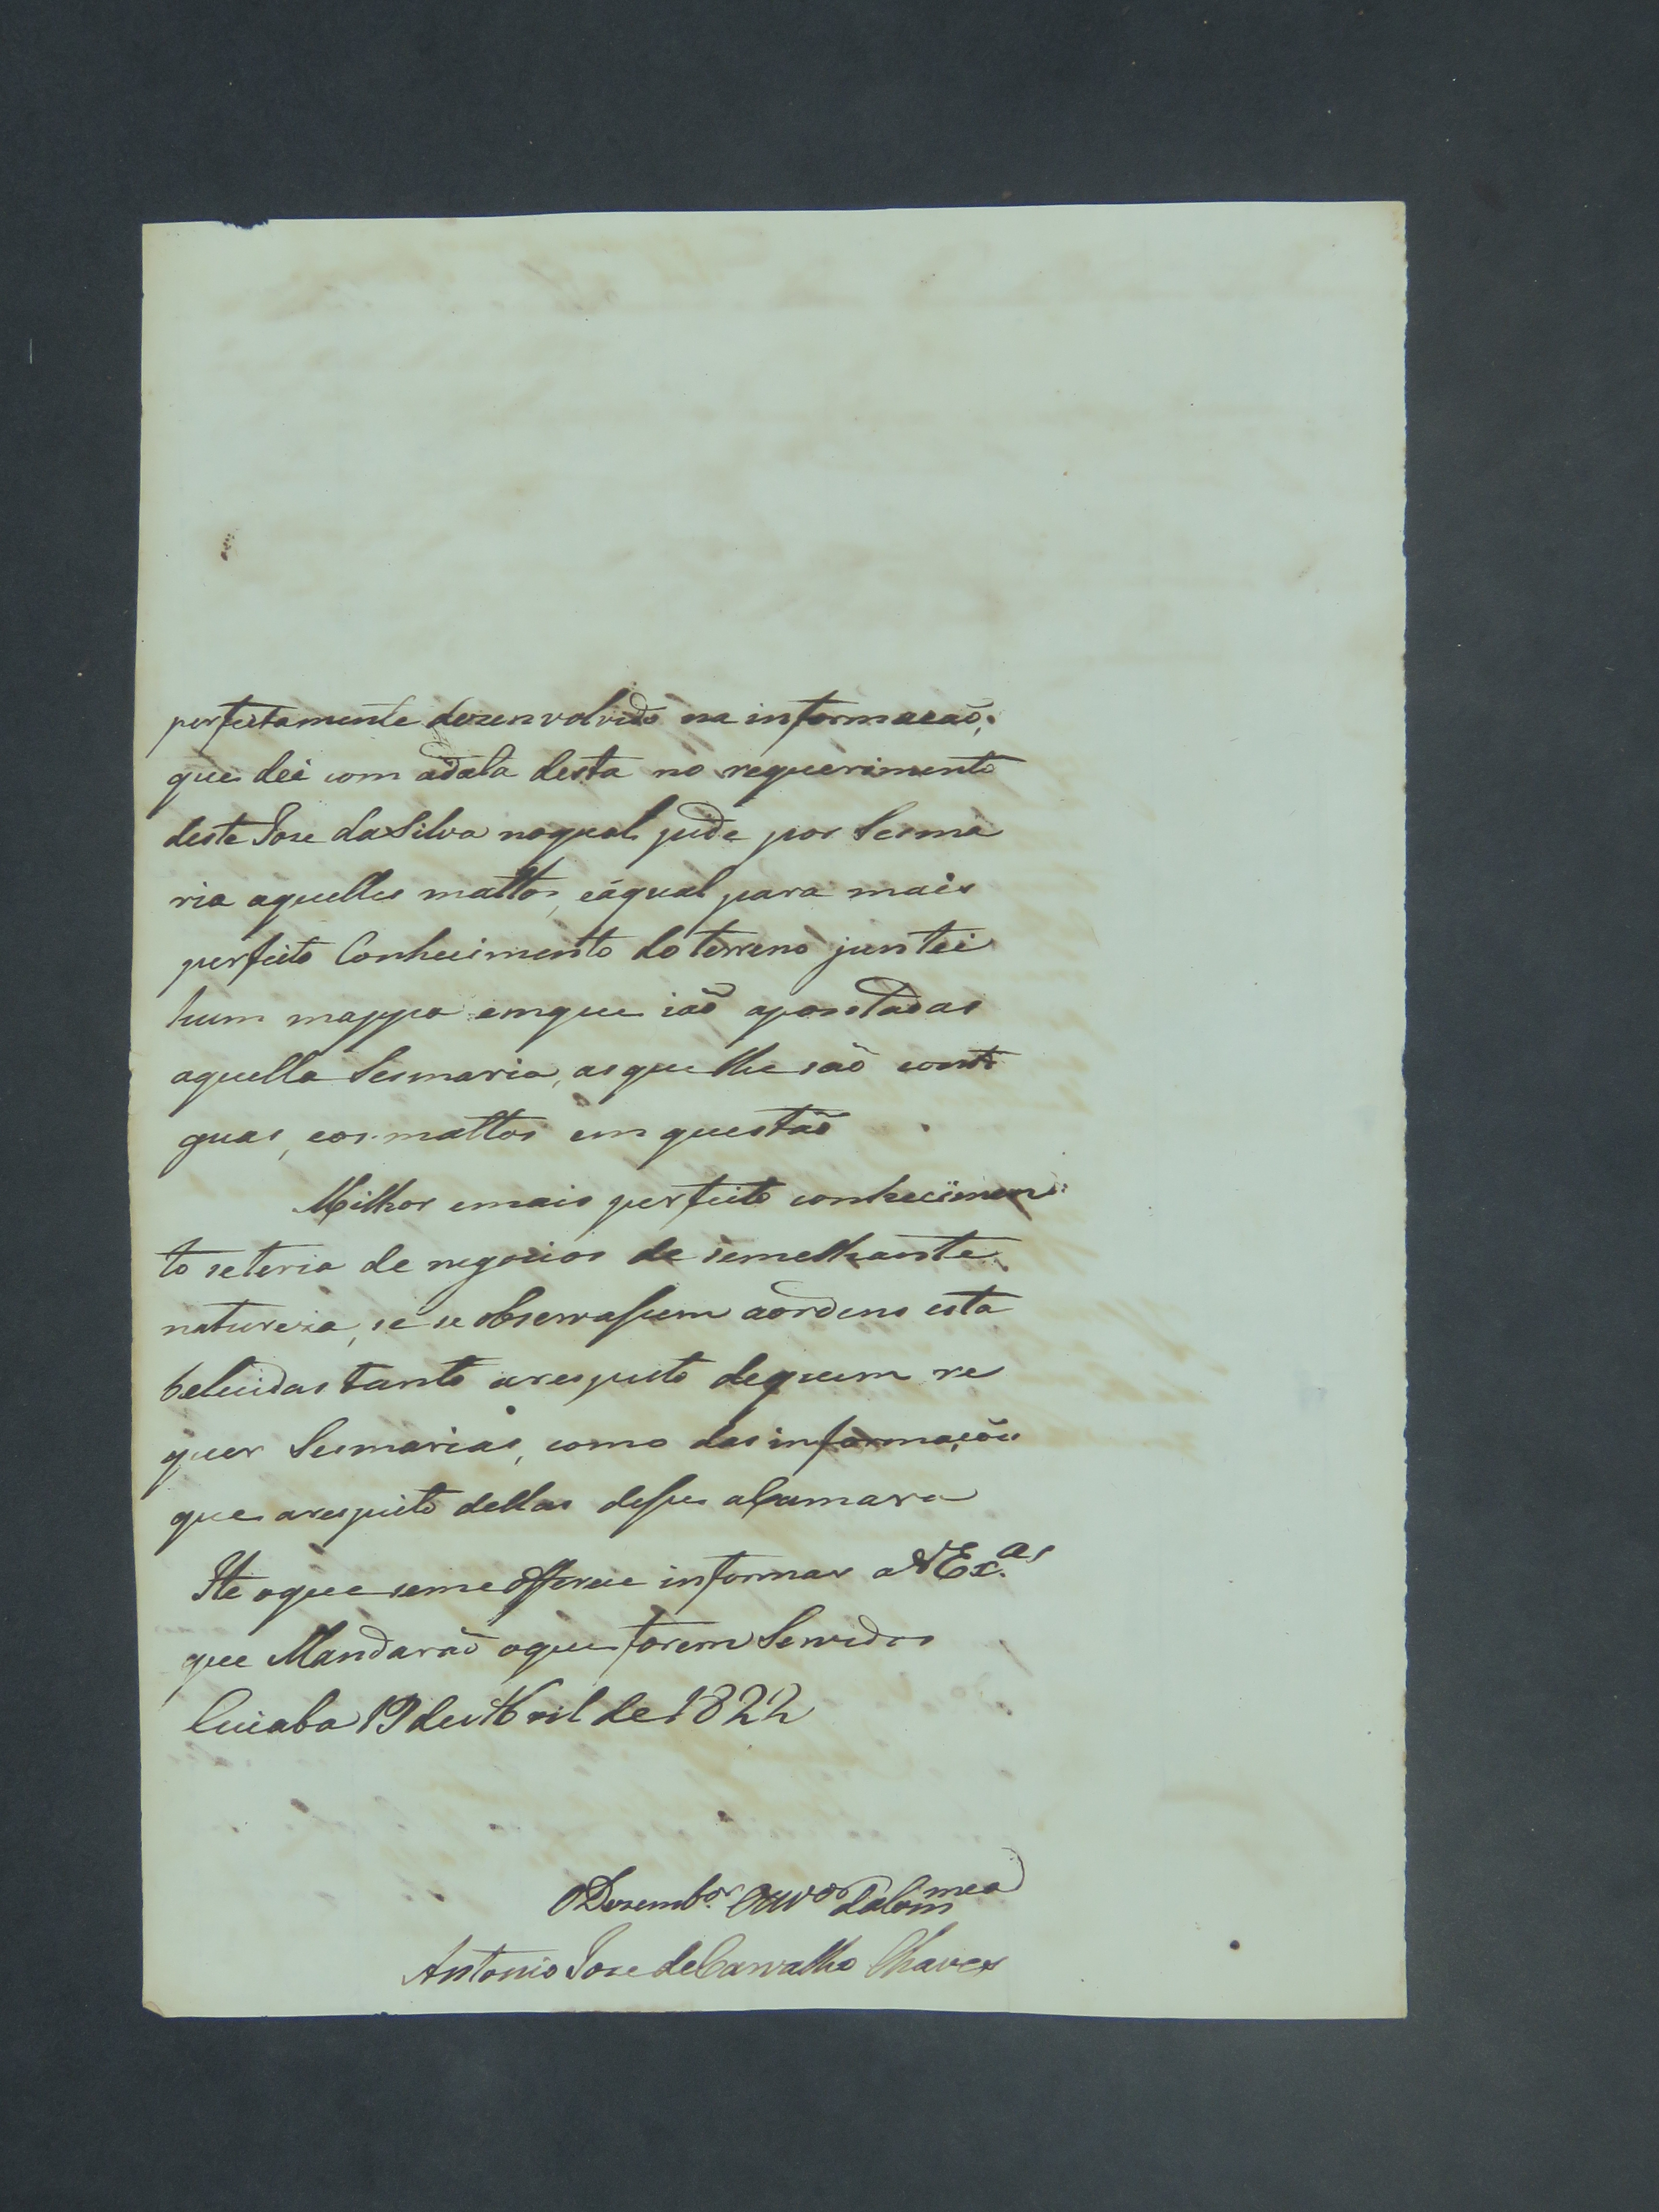 perfeitamente dezenvolvido na informacaõ,
que dei com adata desta no requerimento
deste Joze daSilva noqual pide por Sesma
ria aquelles mattos, eáqual para mais
perfeito Conhecimento do terreno juntei
hum mappa emque são apontadas
aquella Sesmaria, asque lhe são conti
guas, eos mattos em questaõ
Milhor emais perfeito conhecimen
to seteria de negocios de semelhante
natureza, se se observassem aordens esta
belecidas tanto arespeito dequem re
quer Sesmarias, como das informaçoẽs
que arespeito dellas desse aCamara
He oque seme offerece informar a VExᵃˢ
que Mandaraõ oque forem Servidos
Cuiaba 19 de Abril de 1822
O Dezembᵒʳ Ouvᵒʳ daCom ᵐᶜᵃ
Antonio Joze deCarvalho Chaves